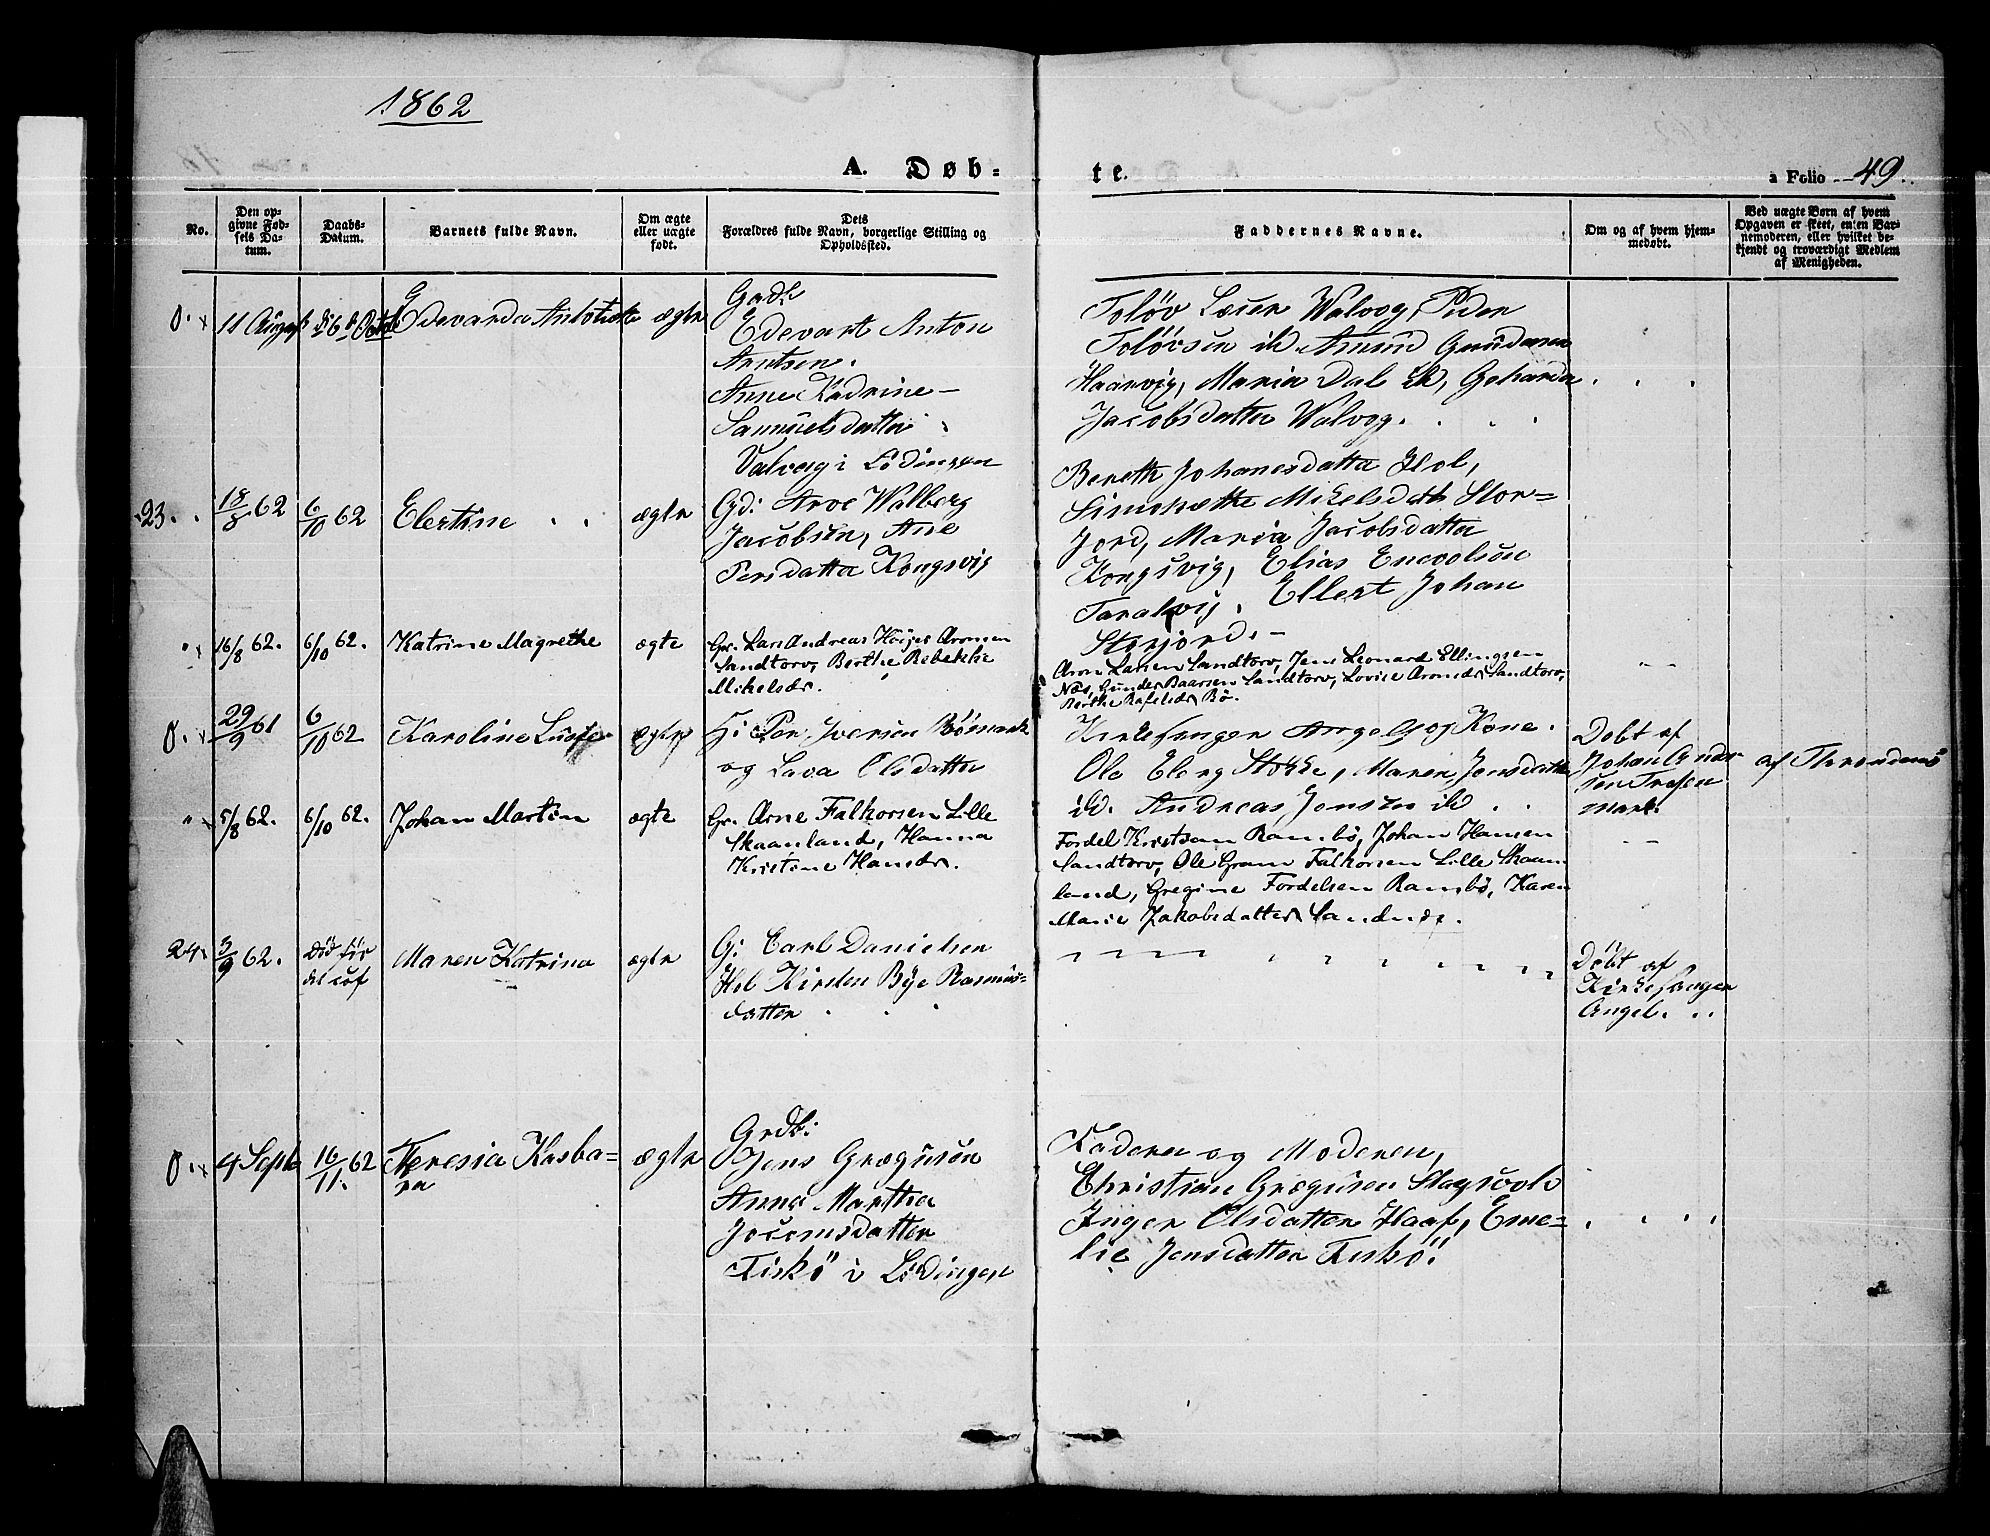 1862
A. Døb-
te.
a Folio 49.
No.
Den op-
givne Fød-
sels Da-
tum.
Daabs-
Datum.
Barnets fulde Navn.
Om ægte
eller uægte
født.
Dets
Forældres fulde Navn, borgerlige Stilling og
Opholdssted.
Faddernes Navne.
Om og af hvem hjem-
medøbt.
Ved uægte Børn af hvem
Opgaven er skeet, enten Bar-
nemoderen, eller hvilket be-
kjendt og troværdigt Medlem
af Menigheden.
0. 11 August 6 Octb Edevarda Antonette ægte
Gadb
Edevart Anton
Arntsen.
Anne Kadrine
Samuelsdatter
Valvaag i Lødingen
Toløv Larsen Walvog, Peder
Toløvsen ib Amund Gundersen
Haarvig, Maria Dal ib, Geharda
Jacobsdatter Walvog.
23. 18/8 62 6/10 62 Elertine ægte
Gd: Arve Walberg
Jacobsen, Ane
Persdatter Kongsvig
Bereth Johanesdatter Hol,
Simonethe Mikelsdatt Stor-
jord, Maria Jacobsdatter
Kongsvig, Elias Encvolsen
Taralvig. Ellert Johan
Storjord.
" 16/8 62. 6/10 62. Katrine Magrethe ægte
Gr. Lars Andreas Hoijer Aronsen
Sandtorv, Berthe Rebekkie
Mikelsdr.
Aron Larsen Sandtorv, Jens Leonard Ellingsen
Næs, Gunder Baarsen Sandtorv, Lovise Aronsdr Sandtorv,
Berthe Rafelsdr Bø.
0. 29/9 61 6/10 62 Karoline ægte
Hi Per Iversen Bømark
og Lava Olsdatter
Kirkesanger Angel og Kone.
Ole Elerg Stokke, Maren Jensdatter
ib. Andreas Jensen ib
Døbt af
Johan Andr
sen Tresen
mark.
af Throndenes
" 5/8 62. 6/10 62. Johan Martin ægte
Gr. Arne Falkorsen Lille
Skaanland, Hanna
Kristine Hansdr.
Fordel Kristsam Rambø, Johan Hansen
Sandtorv, Ole Gram Falkorsen Lille Skaan
land, Gregine Fordelsen Rambø, Karen
Marie Jakobsdatter Sandnæs.
24. 3/9 62. Død før
Maren Katrina ægte
G: Carl Danielsen
Hol Kirsten Bye Rasmus-
datter
Døbt af
Kirkesanger
Angel.
0. 4 Septb 16/11. 62 Teresia Kasba-
ra
ægte
Grdb:
Jens Grægusøn
Anna Martha
Jocomsdatter
Fiskø i Lødingen
Faderen og Moderen,
Christian Grægusen Slagsvold
Inger Olsdatter Haaf, Eme-
lie Jensdatter Fiskø.